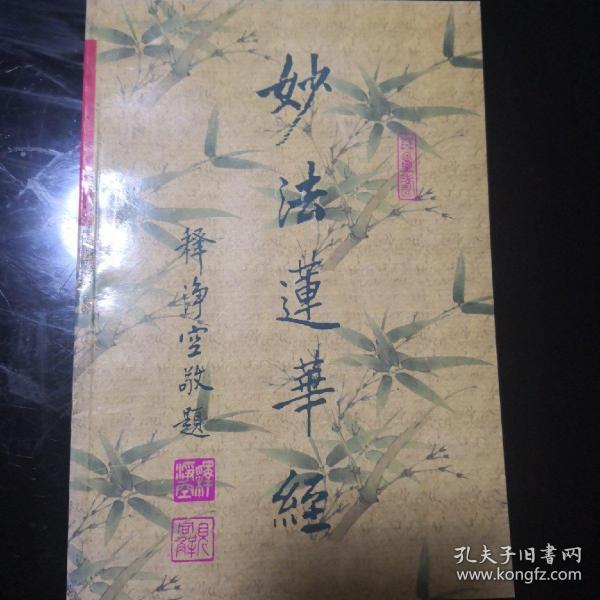 妙法蓮華經
释淨空敬題
孔夫子旧书网
www.kongfz.com